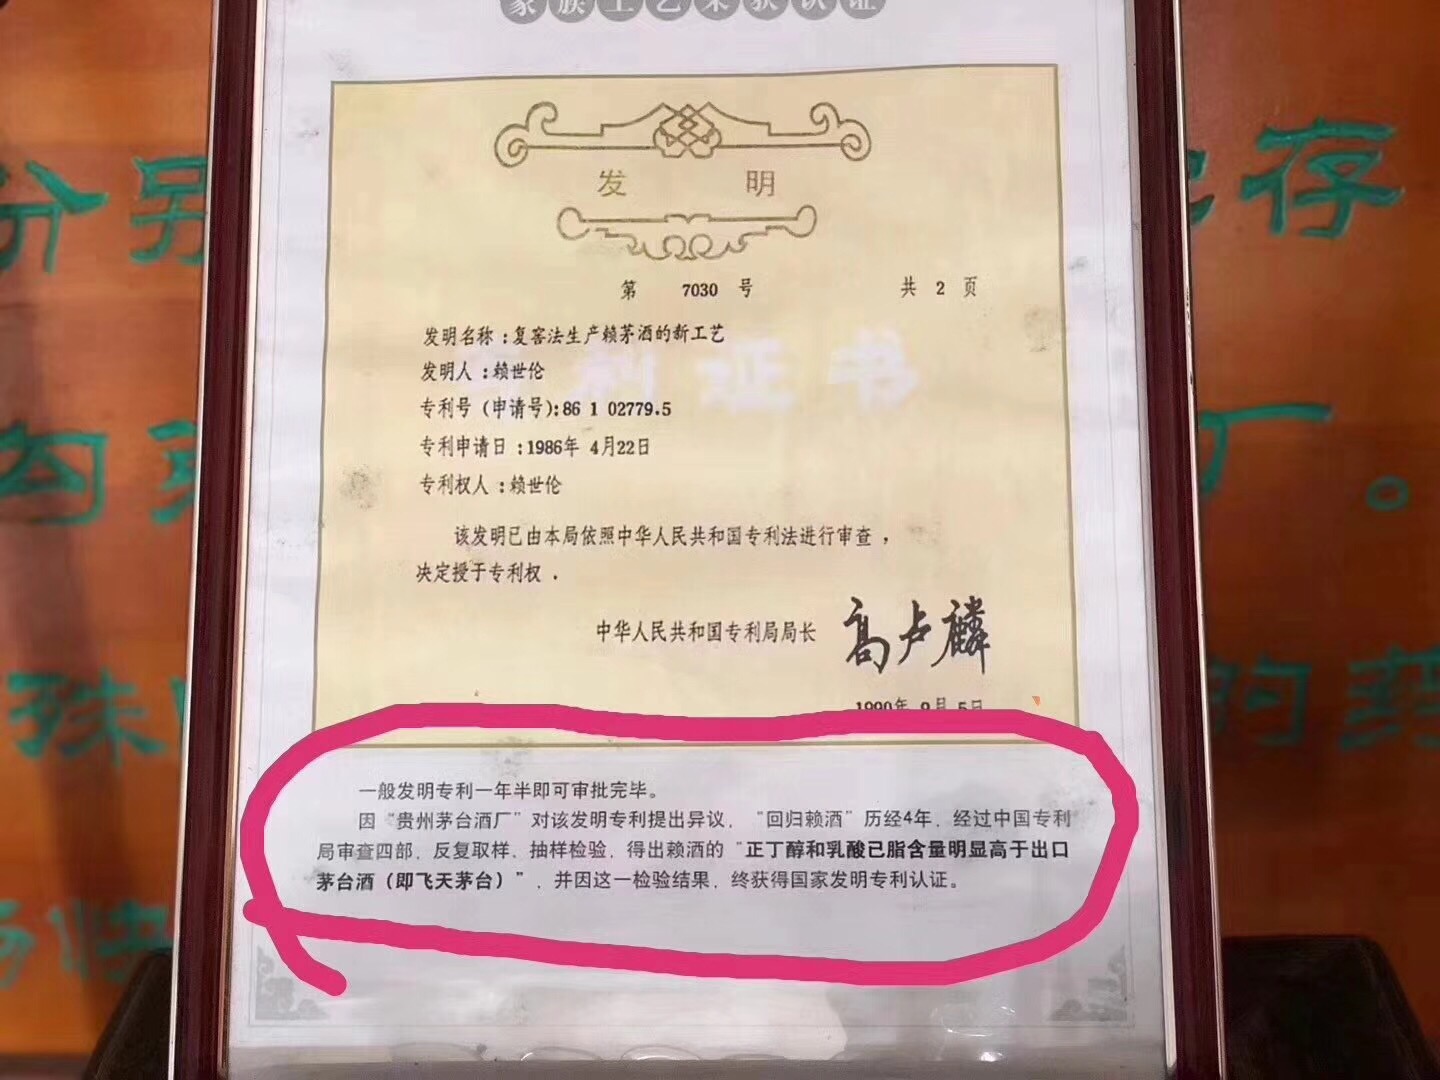 家族工艺荣获认证
发 明
第 7030 号 共 2 页
发明名称：复窖法生产赖茅酒的新工艺
发明人：赖世伦
专利号（申请号）：86 1 02779.5
专利申请日：1986年 4月22日
专利权人：赖世伦
该发明已由本局依照中华人民共和国专利法进行审查，
决定授于专利权．
中华人民共和国专利局局长 高卢麟
1990年 9月 5日
一般发明专利一年半即可审批完毕。
因“贵州茅台酒厂”对该发明专利提出异议，“回归赖酒”历经4年，经过中国专利
局审查四部，反复取样，抽样检验，得出赖酒的“正丁醇和乳酸已脂含量明显高于出口
茅台酒（即飞天茅台）”，并因这一检验结果，终获得国家发明专利认证。
利证书
份别
存
勾
丁。
珠
的药